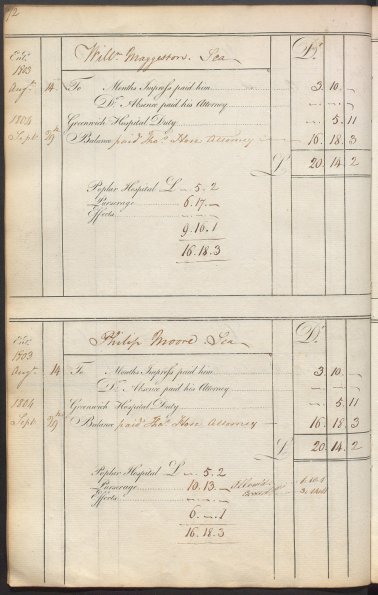 Willm Maggeston. Sea
Dr
Entd.
1803
Augt. 14 To Months Impress paid him 3. 10. –
Do. Absence paid his Attorney – – –
1804 Greenwich Hospital Duty – 5. 11
Sept. Balance paid Thos. Hore Attorney 16. 18. 3
20. 14. 2
Poplar Hospital £ – . 5. 2
Purserage 6. 17. –
Effects
9. 16. 1
16. 18. 3
Philip Moore. Sea
Dr
Entd.
1803
Augt. 14 To Months Impress paid him 3. 10. –
Do. Absence paid his Attorney – – –
1804 Greenwich Hospital Duty – 5. 11
Sept. Balance paid Thos. Hore Attorney 16. 18. 3
£ 20. 14. 2
Poplar Hospital £ – . 5. 2
Purserage 10. 13. –
Effects – . – . –
6. – . 1
16. 18. 3